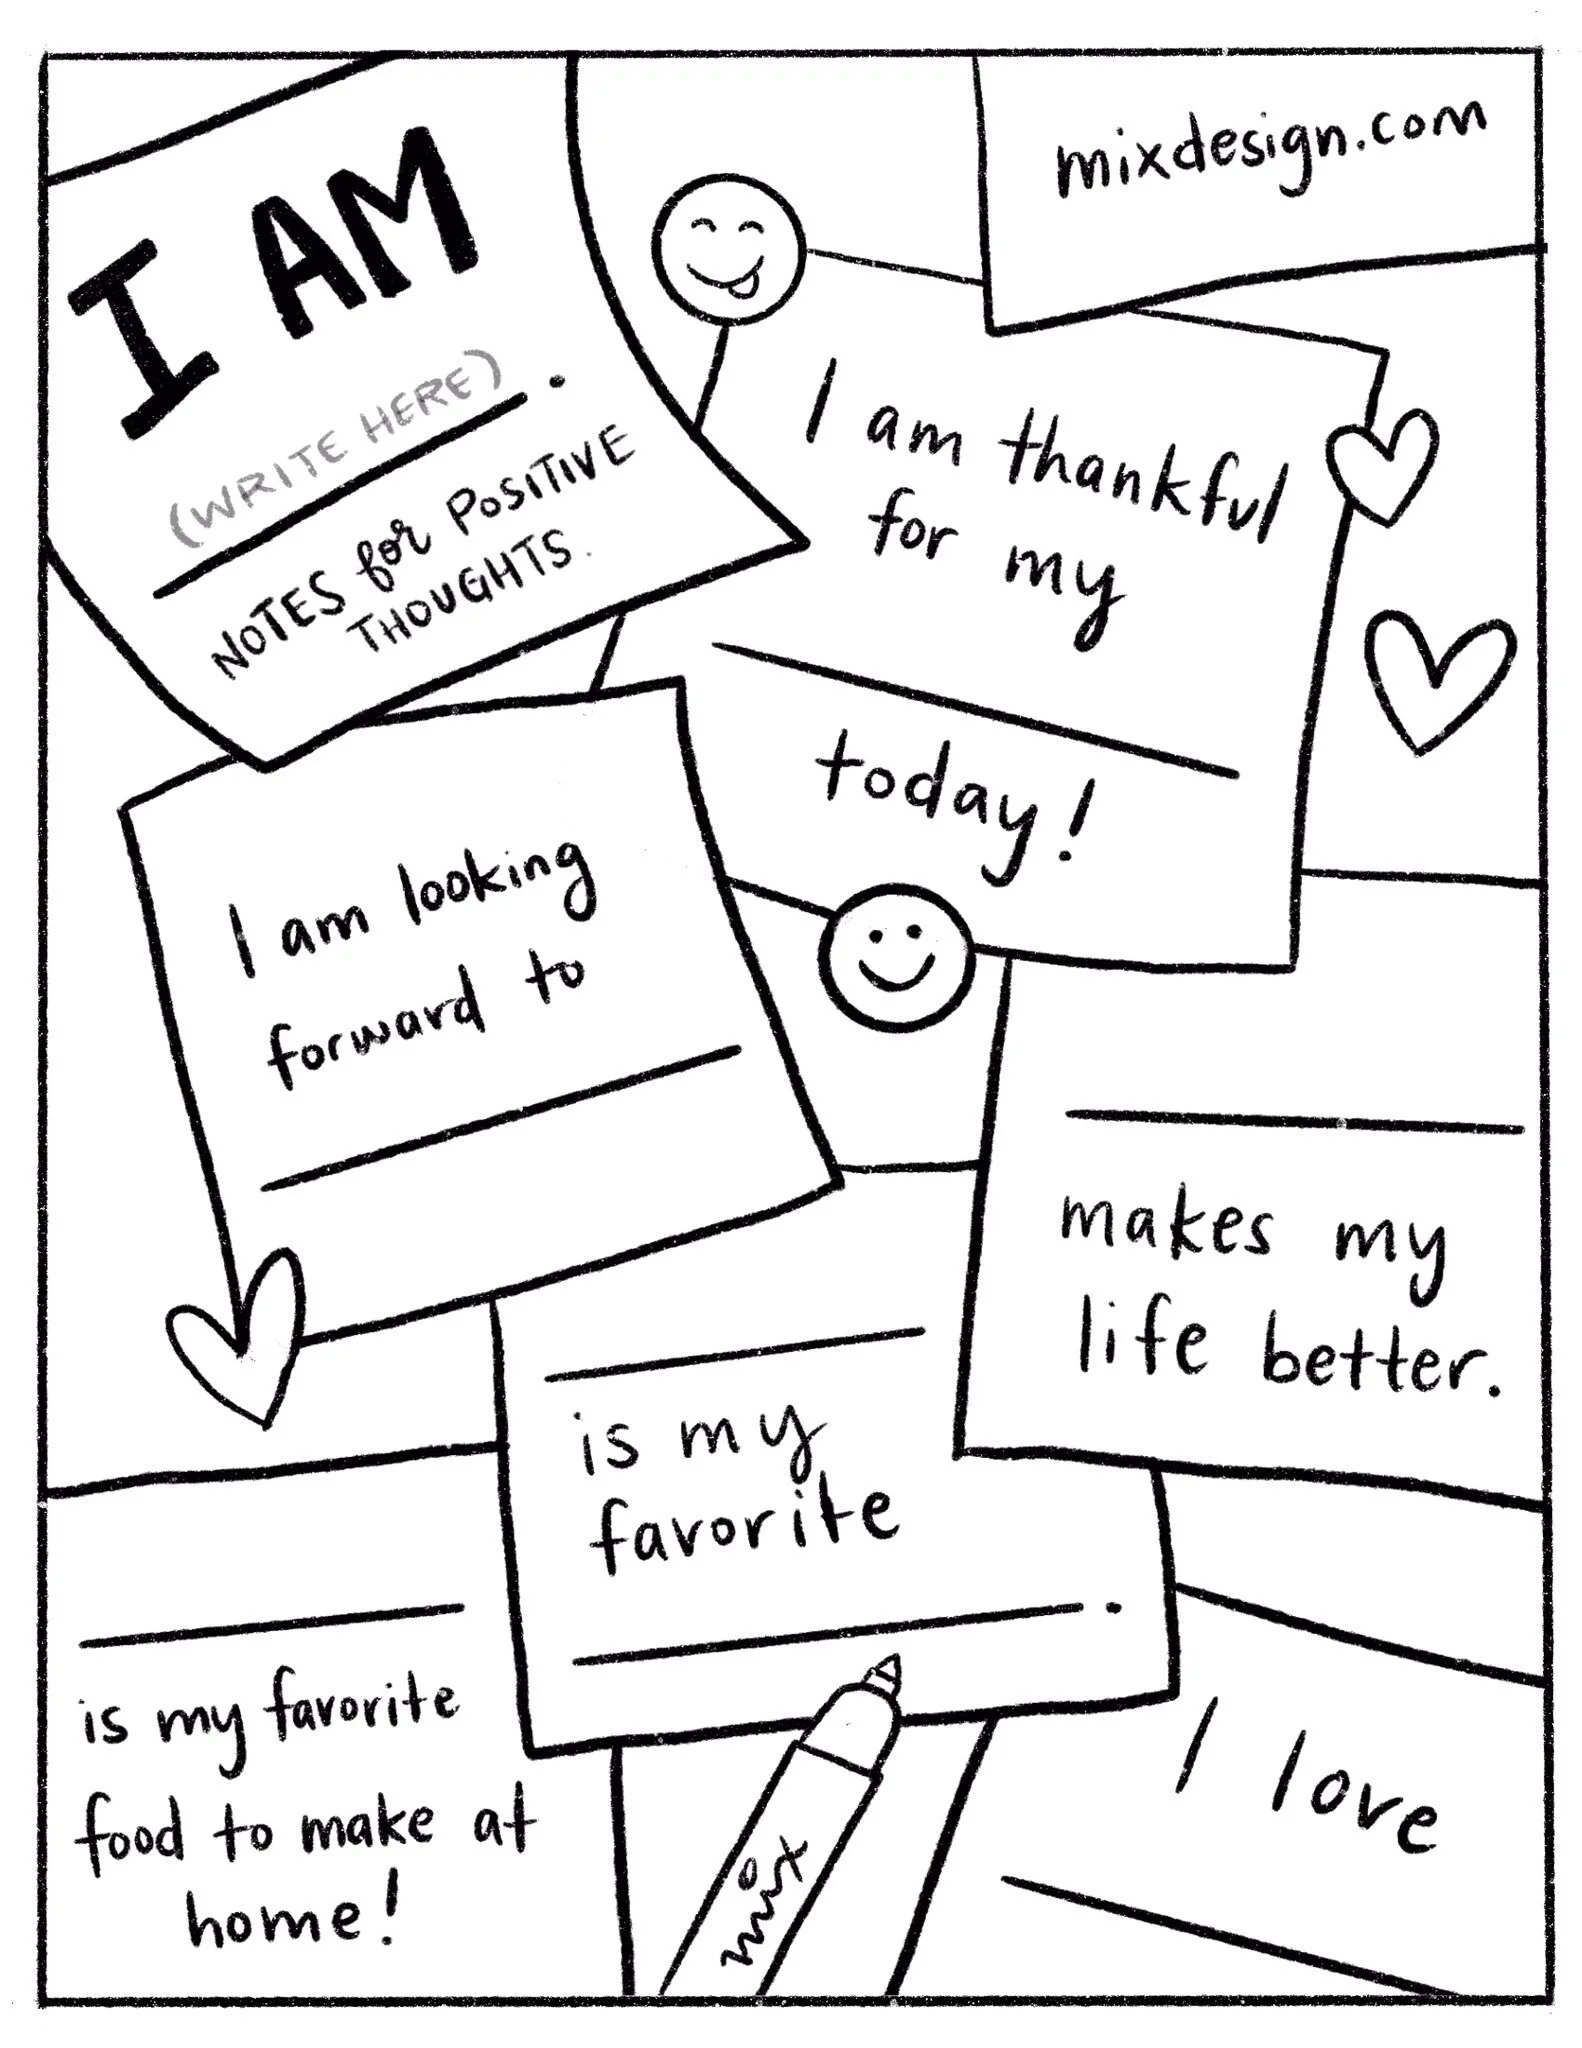 I AM
(WRITE HERE)
.
NOTES for POSITIVE
THOUGHTS.
mixdesign.com
I am thankful
for my
today!
I am looking
forward to
makes my
life better.
is my
favorite
.
is my favorite
food to make at
home!
I love
mix